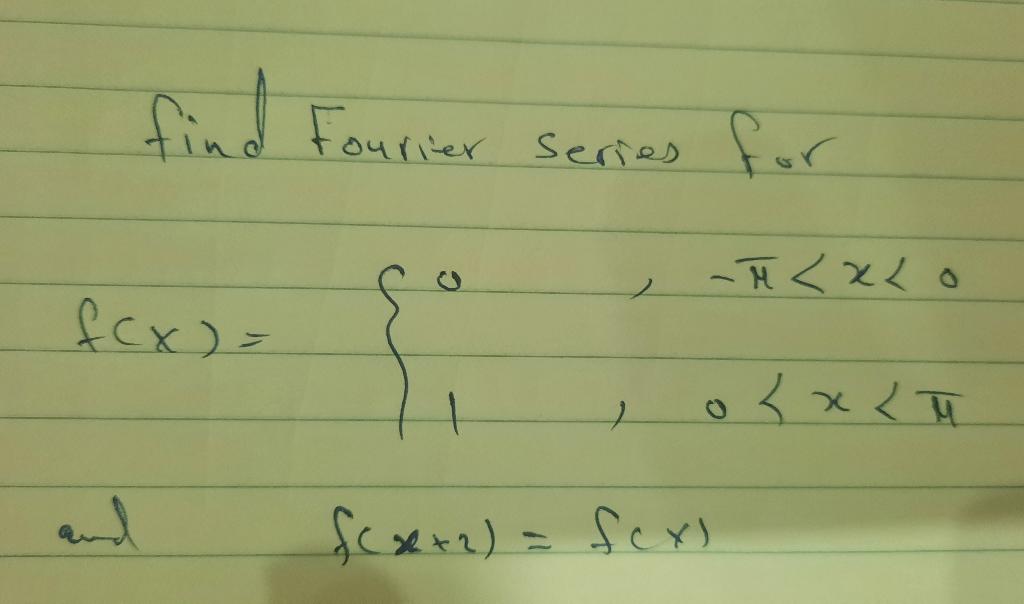 find Fourier series for
f(x) = { 0 , -π < x < 0
1 , 0 < x < π
and f(x+2) = f(x)